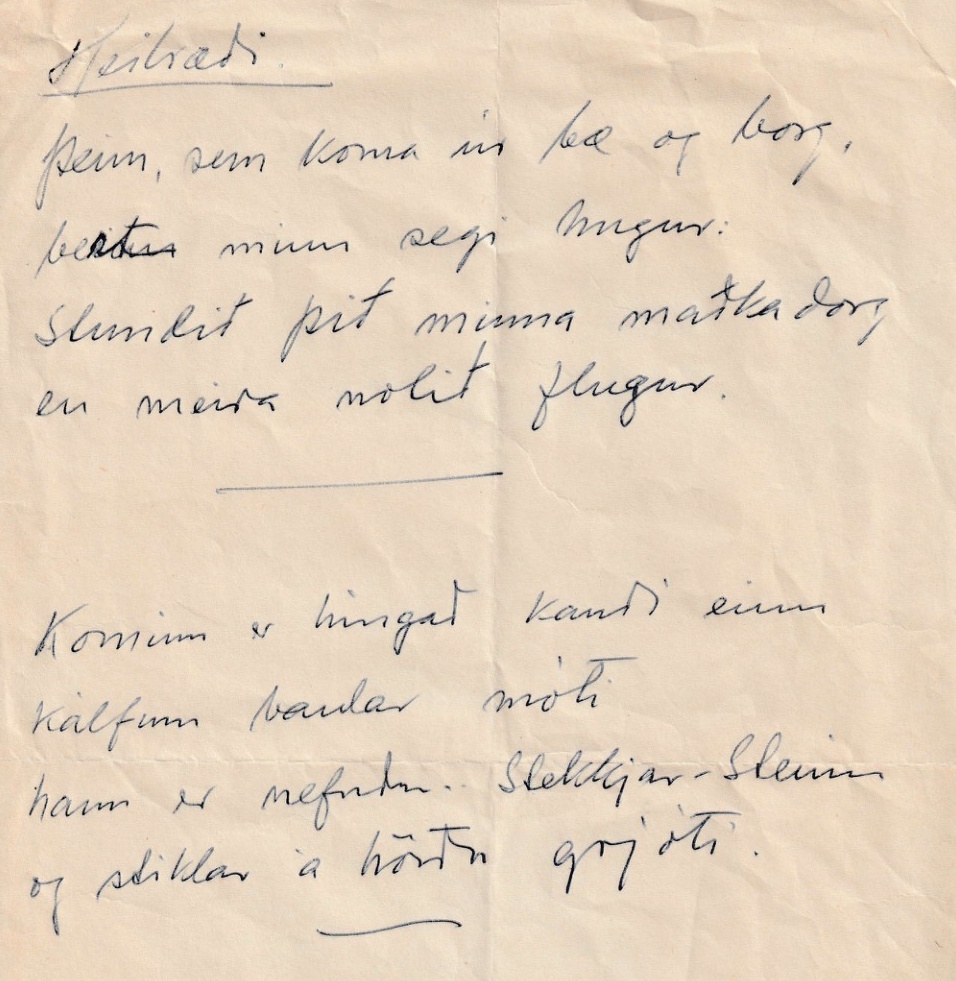 Heilræði.
Þeim, sem koma úr bæ og borg,
bestur minn segi hugur:
Stundið þið minna maðkadorg
en meira notið flugur.
Kominn er hingað kandi einn
kálfum baular móti
hann er nefndur.. Stekkjar-Steinn
og stiklar á hörðu grjóti.